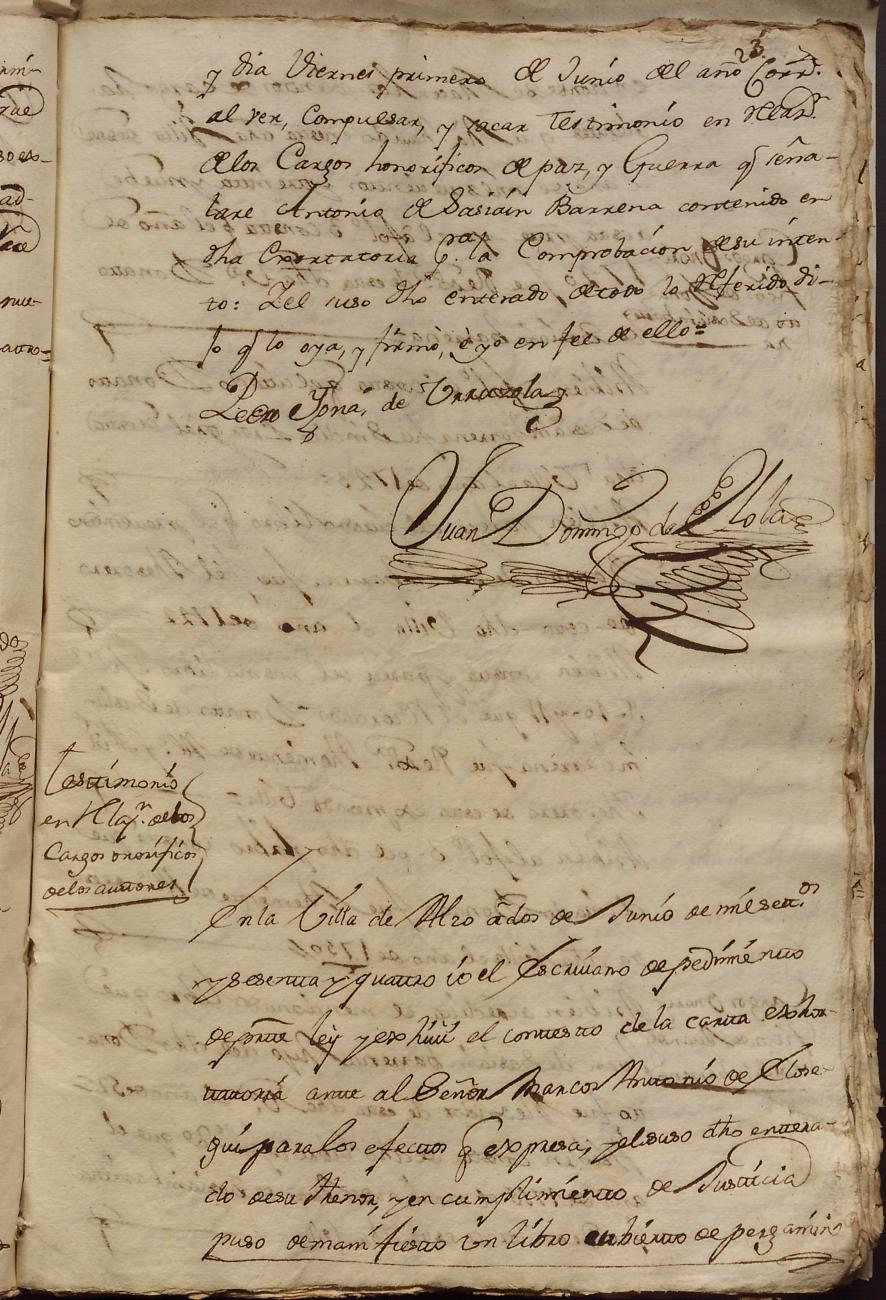 23
y dia Viernes primero de Junio del año Corr.te
al ver, Compulsar, y sacar Testimonio en Relaz.n
delos Cargos honorificos de paz, y Guerra q seña-
lare Antonio de Sasiain Barrena contenido en
dha Exortatoria p.ra la Comprobacion de su inten-
to: Y el suso dho enterado de todo lo Referido di-
jo q lo oya, y firmò, è yo en fee de ello=
Pedro Ygna.º de Urrazola
Juan Domingo de
Testimonio
en Relaz.n delos
Cargos onorificos
delos auttores
En la Villa de Alzo à dos de Junio de mil settos
y sesentta y quattro io el Escrivano de pedimentto
de partte ley y exhiví el conttestto de la cartta exhor-
ttattoria antte al Señor Marcos Anttonio de Elose-
gui para los efecttos q expresa, y el suso dho enttera-
do de su thenor, y en cumplimientto de Justticia
puso de manifiestto un libro cubiertto de pergamin